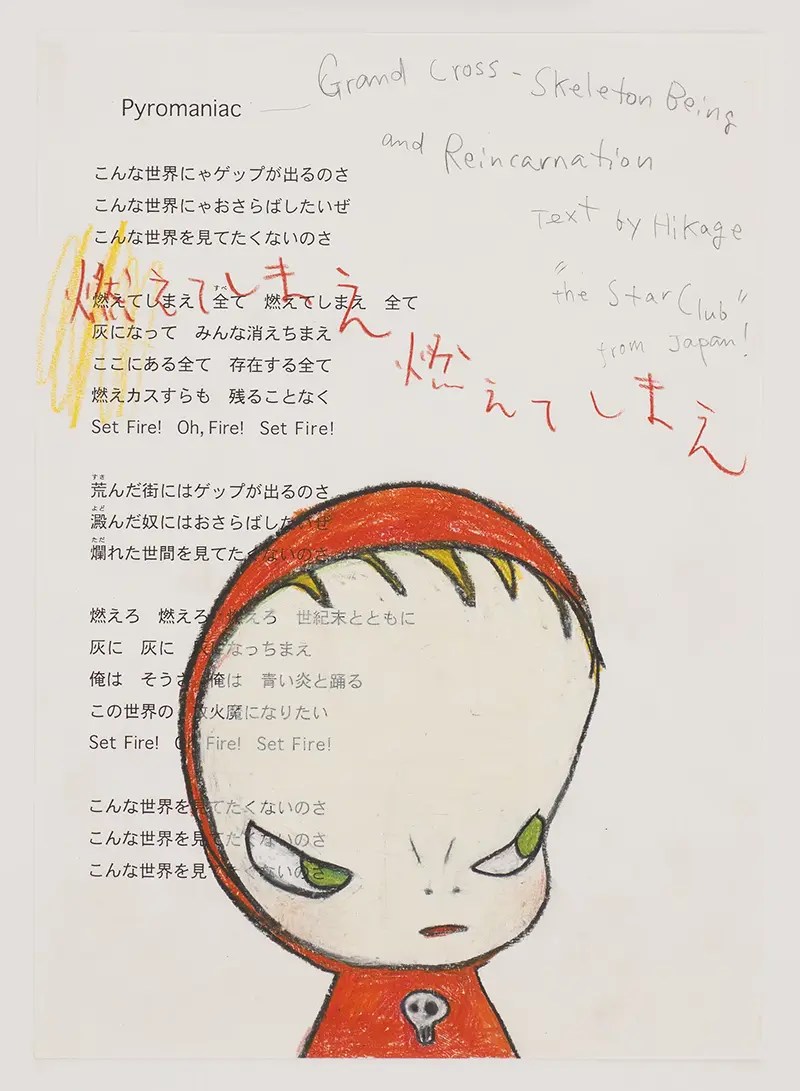 Grand Cross - Skeleton Being
Pyromaniac
and Reincarnation
Text by Hikage
"the Star Club"
from Japan!
こんな世界にゃゲップが出るのさ
こんな世界にゃおさらばしたいぜ
こんな世界を見てたくないのさ
燃えてしまえ
燃えてしまえ
すべ
燃えてしまえ　全て　燃えてしまえ　全て
灰になって　みんな消えちまえ
ここにある全て　存在する全て
燃えカスすらも　残ることなく
Set Fire!　Oh, Fire!　Set Fire!
すさ
荒んだ街にはゲップが出るのさ
よど
澱んだ奴にはおさらばしたいぜ
ただ
爛れた世間を見てたくないのさ
燃えろ　燃えろ　燃えろ　世紀末とともに
灰に　灰に　灰になっちまえ
俺は　そうさ　俺は　青い炎と踊る
この世界の　放火魔になりたい
Set Fire!　Oh, Fire!　Set Fire!
こんな世界を見てたくないのさ
こんな世界を見てたくないのさ
こんな世界を見てたくないのさ